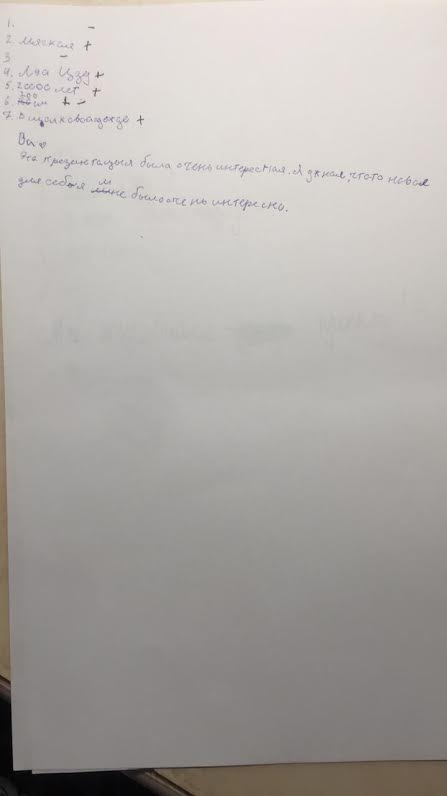 1. -
2. Мягкая +
3 -
4. Лаа Цзу +
5. 20000 лет +
6. 700 см + -
7. В шолковой одежде +
Ва
Эта презентацыя была очень интересная. Я узнал, что то новое
для себья мне было очень интересно.